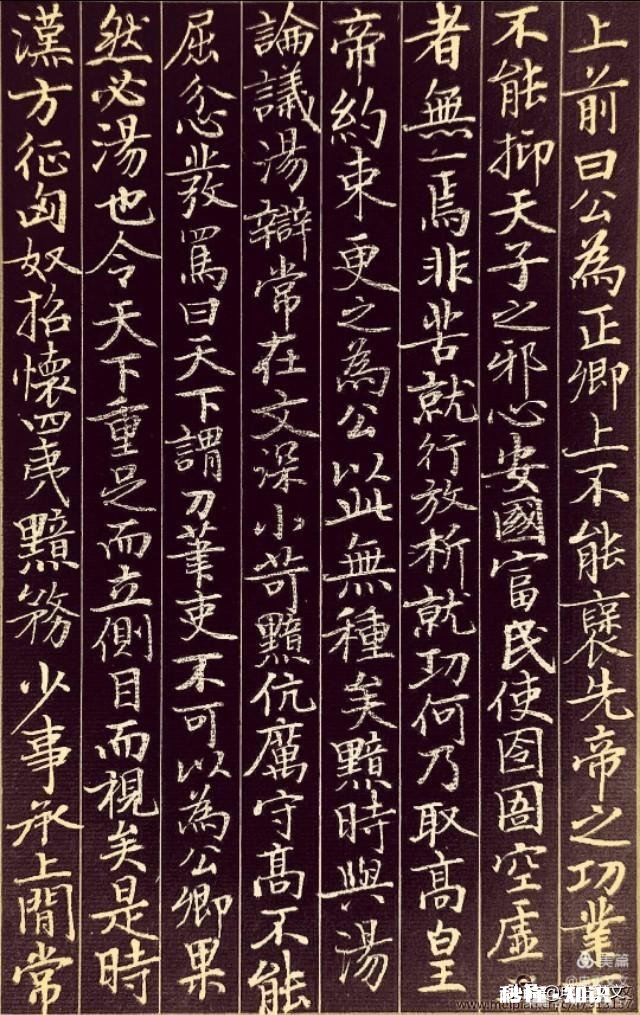 上前曰公為正卿上不能襃先帝之功業
不能抑天子之邪心安國富民使囹圄空虛
者無一焉非苦就行放析就功何乃取高皇
帝約束更之為公以此無種矣黯時與湯
論議湯辯常在文深小苛黯伉厲守高不能
屈忿發罵曰天下謂刀筆吏不可以為公卿果
然必湯也令天下重足而立側目而視矣是時
漢方征匈奴招懷四夷黯務少事承上閒常
美篇